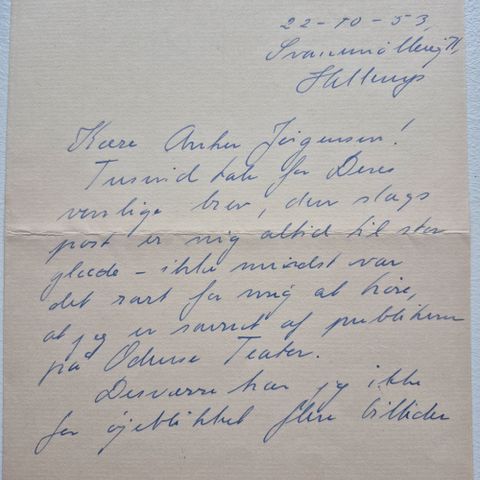 22-10-53,
Svanemøllevej 71,
Hellerup
Kære Anker Jørgensen!
Tusind tak for Deres
venlige brev, den slags
post er mig altid til stor
glæde - ikke mindst var
det rart for mig at høre,
at jeg er savnet af publikum
på Odense Teater.
Desværre har jeg ikke
for øjeblikket flere billeder